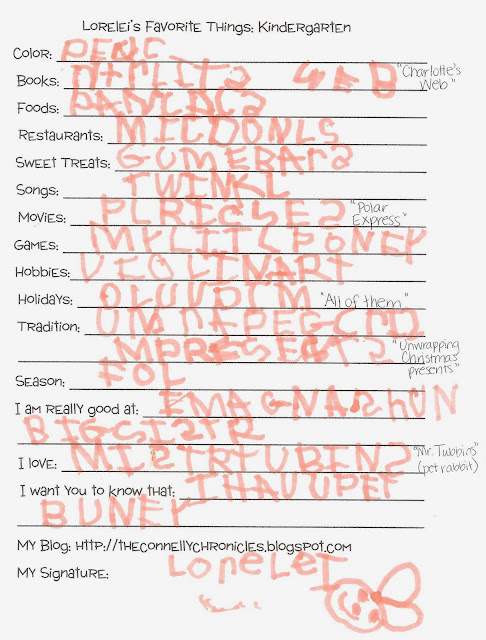 Lorelei's Favorite Things: Kindergarten
Color: PENC
Books: WEB "Charlotte's Web"
Foods: PANCACS
Restaurants: MICDONLS
Sweet Treats: GUMEBARS
Songs: TWINKL
Movies: PLRICSES "Polar Express"
Games: MYLITLPONEY
Hobbies: VIOLINART
Holidays: OLUVDEM "All of them"
Tradition: UNREPEGCRD
MPRESETS "Unwrapping Christmas presents"
Season: FOL
I am really good at: EMAGNASHUN
BIGSISTR
I love: MISTRTUBENS "Mr. Tubbins" (pet rabbit)
I want you to know that: IHAVUPET
BUNEY
My Blog: http://theconnellychronicles.blogspot.com
My Signature: LoreLeI